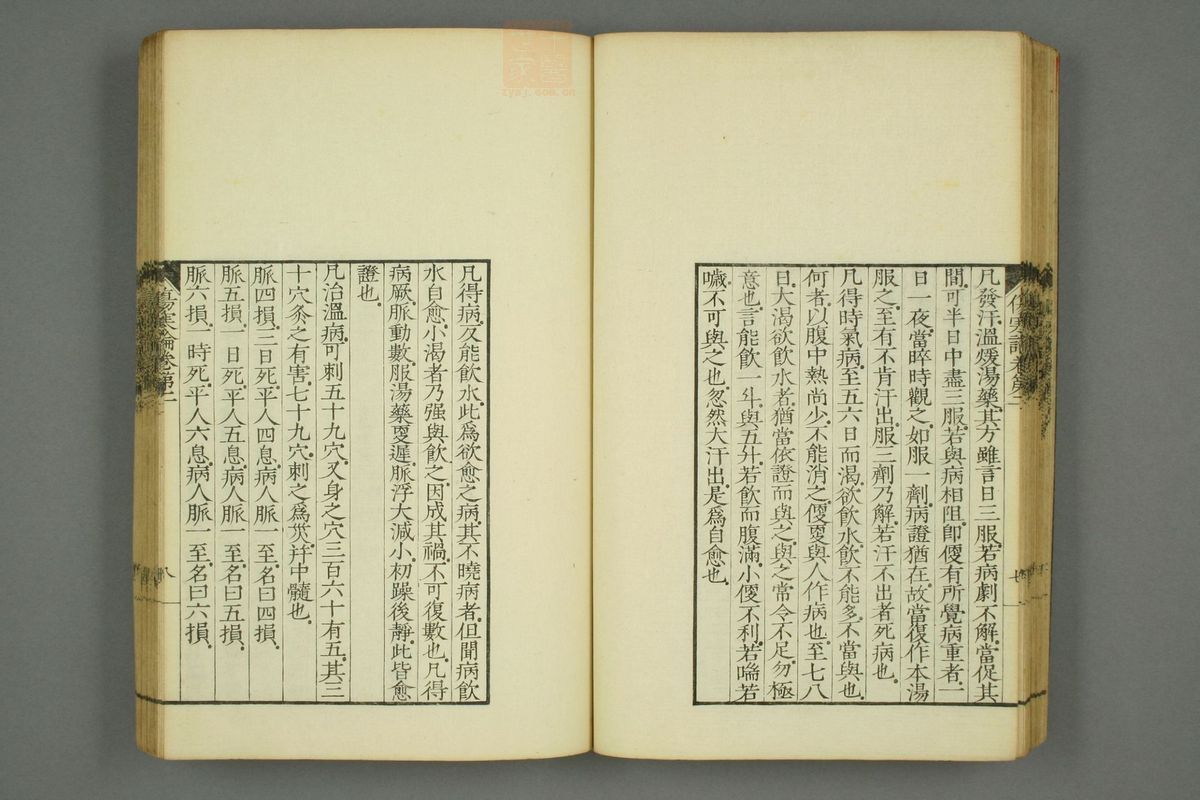 凡發汗。溫煖湯藥。其方雖言日三服。若病劇不解。當促其
間。可半日中盡三服。若與病相阻。即便有所覺。病重者。一
日一夜。當晬時觀之。如服一劑。病證猶在。故當復作本湯
服之。至有不肯汗出。服三劑乃解。若汗不出者。死病也。
凡得時氣病。至五六日。而渴欲飲水。飲不能多。不當與也。
何者。以腹中熱尚少。不能消之。便更與人作病也。至七八
日。大渴欲飲水者。猶當依證而與之。與之常令不足。勿極
意也。言能飲一斗。與五升。若飲而腹滿。小便不利。若喘若
噦。不可與之也。忽然大汗出。是爲自愈也。
傷寒論卷第二
凡得病。反能飲水。此爲欲愈之病。其不曉病者。但聞病飲
水自愈。小渴者。乃强與飲之。因成其禍。不可復數也。凡得
病厥。脈動數。服湯藥更遲。脈浮大減小。初躁後靜。此皆愈
證也。
凡治溫病。可刺五十九穴。又身之穴。三百六十有五。其三
十穴。灸之有害。七十九穴。刺之爲災。并中髓也。
脈四損。三日死。平人四息。病人脈一至。名曰四損。
脈五損。一日死。平人五息。病人脈一至。名曰五損。
脈六損。一時死。平人六息。病人脈一至。名曰六損。
傷寒論卷第二
八
zysj.com.cn